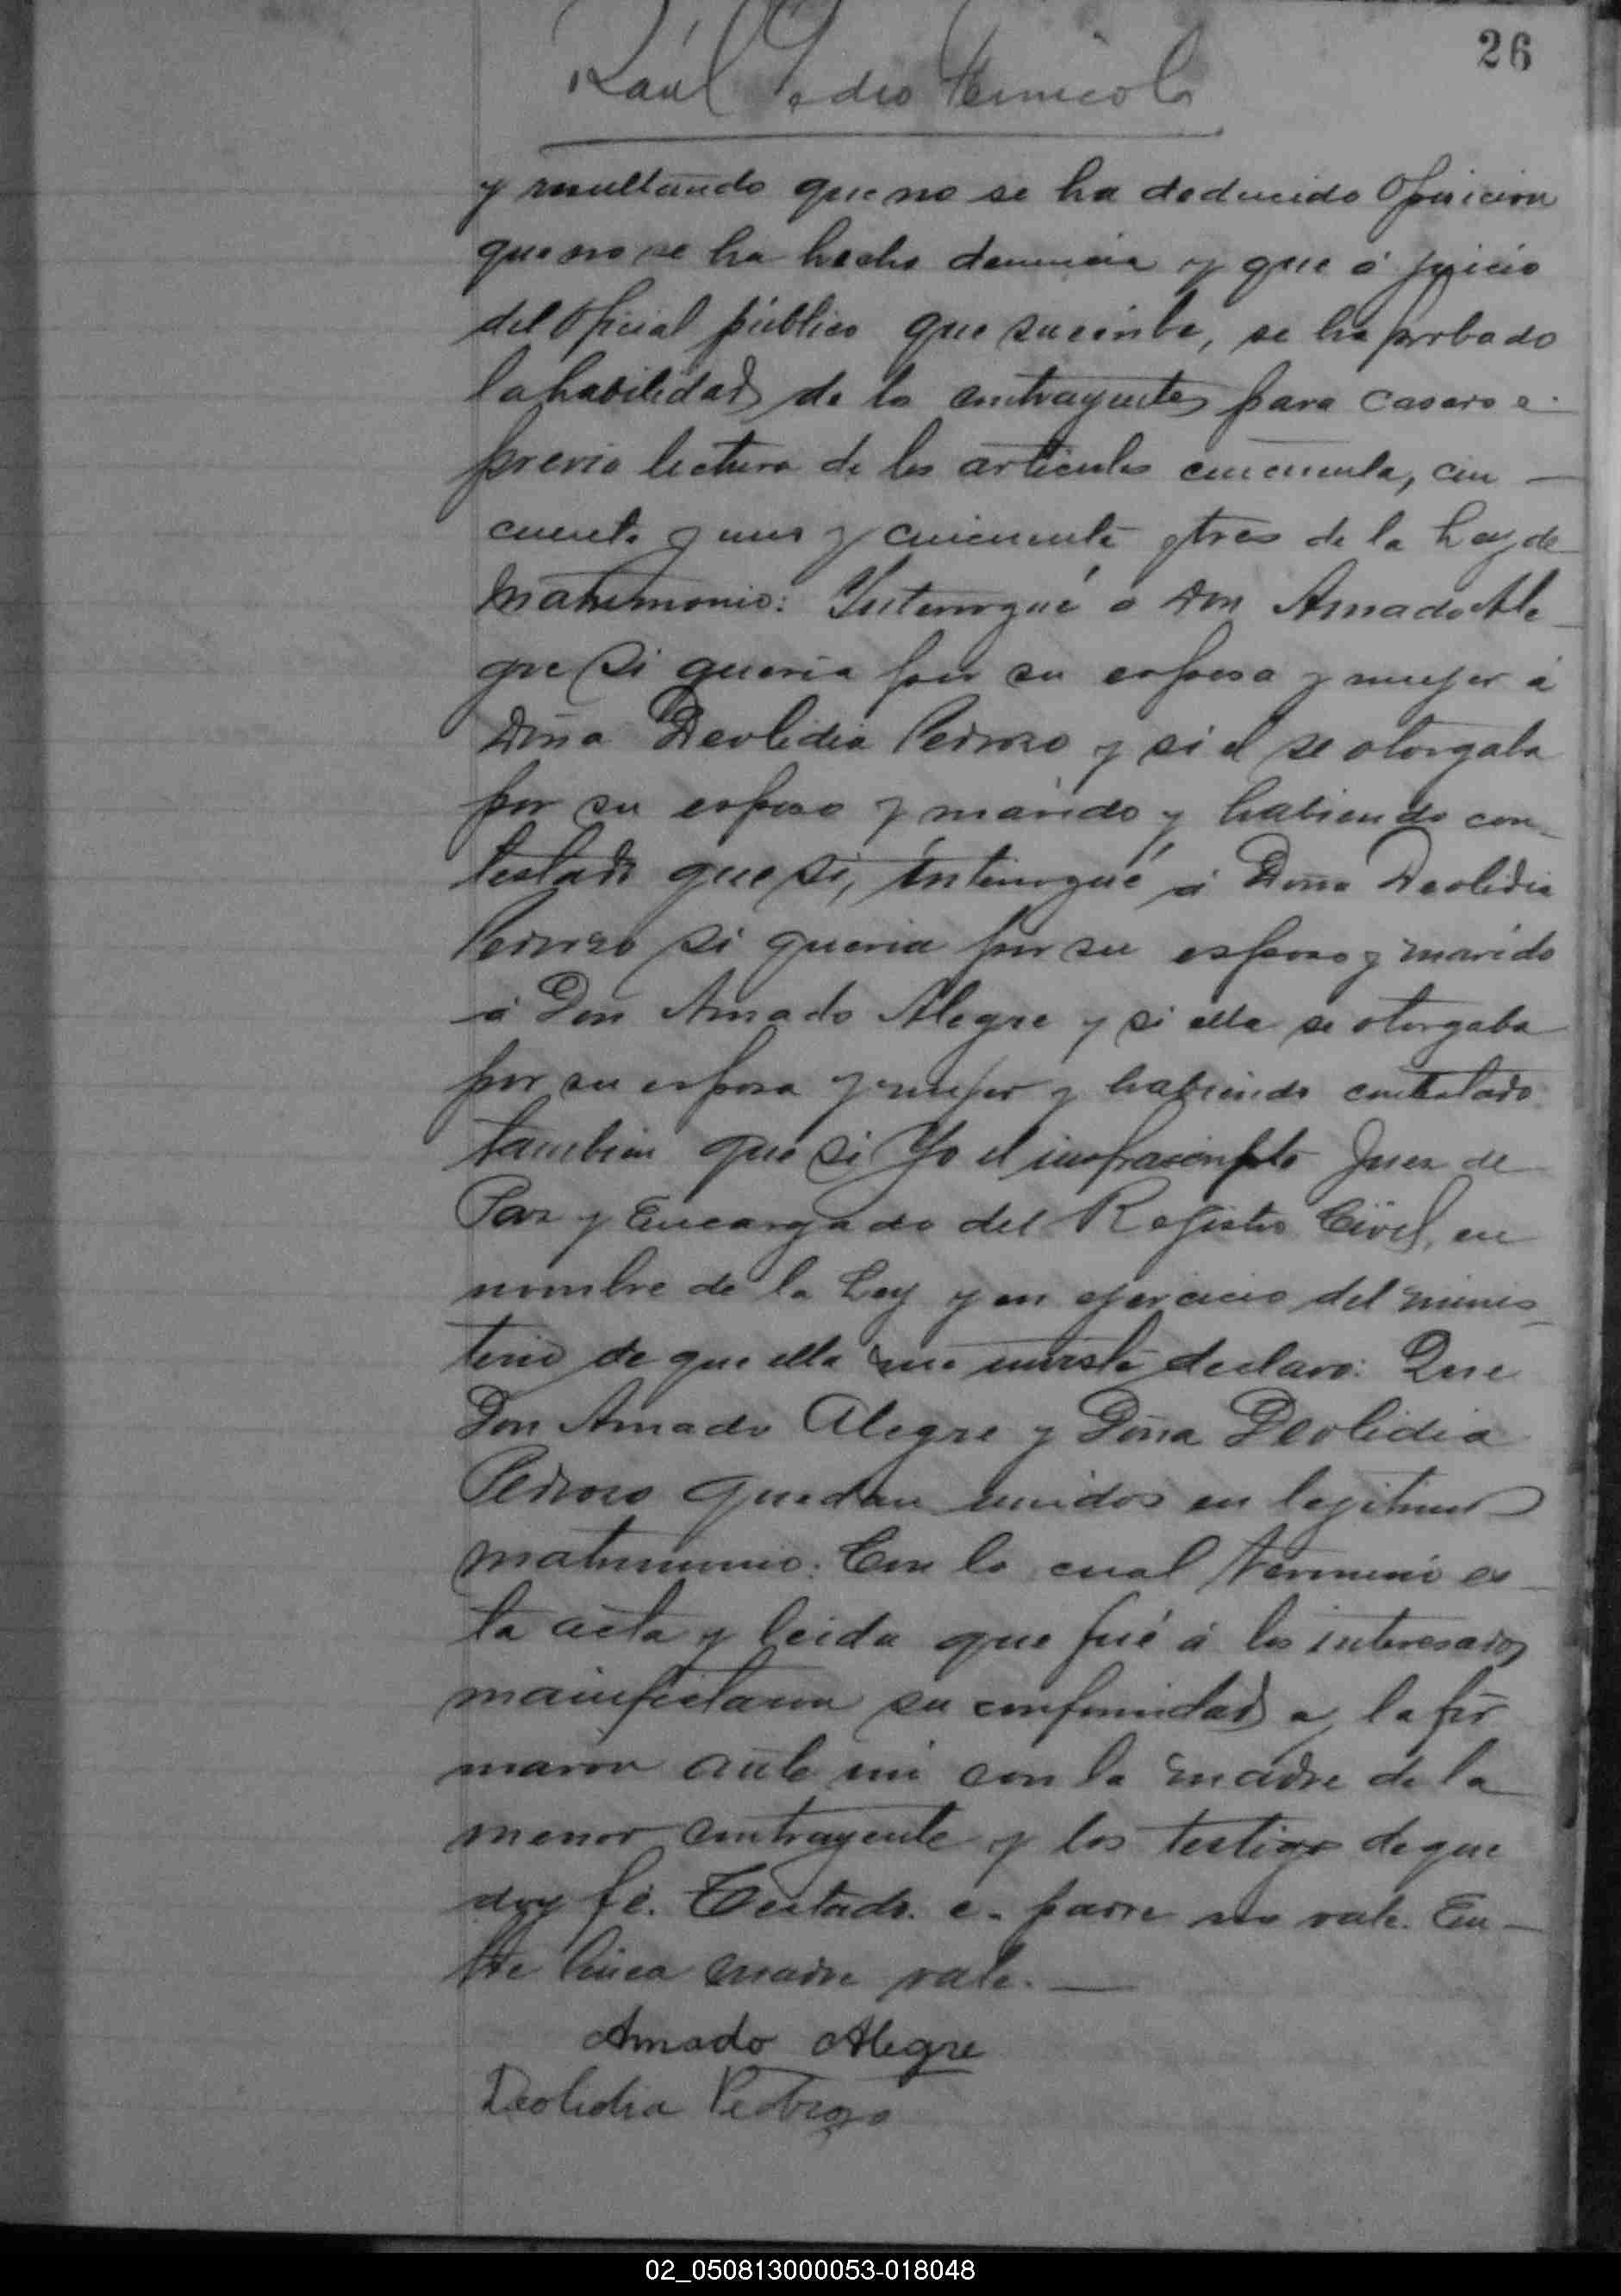 26
Raúl Pedro
y resultando que no se ha deducido Oposicion
que no se ha hecho denuncia y que á juicio
del Oficial público que suscribe, se ha probado
la habilidad de los contrayentes para casarse
previo lectura de los articulos cincuenta, cin-
cuenta y uno y cincuenta y tres de la Ley de
Matrimonio: Interrogué a Don Amado Ale-
gre si queria por su esposa y mujer á
Doña Deolidia Pedrozo y si el se otorgaba
por su esposo y marido y habiendo con-
testado que si, interrogué á Doña Deolidia
Pedrozo si queria por su esposo y marido
á Don Amado Alegre y si ella se otorgaba
por su esposa y mujer y habiendo contestado
tambien que si Yo el infrascripto Juez de
Paz y Encargado del Registro Civil, en
nombre de la Ley y en ejercicio del minis-
terio de que ella me inviste declaro: Que
Don Amado Alegre y Doña Deolidia
Pedrozo quedan unidos en legitimo
matrimonio: Con lo cual terminó es-
ta acta y leida que fué á los interesados
manifestaron su conformidad y la fir
maron ante mi con la madre de la
menor contrayente y los testigos de que
doy fé. Testado. e. padre no vale. En-
tre linea madre vale.—
Amado Alegre
Deolidia Pedrozo
02_050813000053-018048